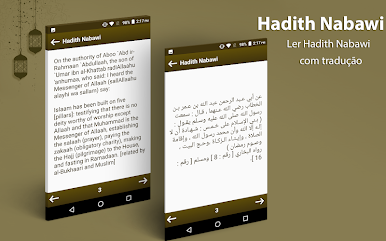 Hadith Nabawi
Ler Hadith Nabawi
com tradução
2:17
Hadith Nabawi
On the authority of Aboo `Abd ir-
Rahmaan `Abdullaah, the son of
`Umar ibn al-Khattab radiAllaahu
`anhumaa, who said: I heard the
Messenger of Allaah (sallAllaahu
alayhi wa sallam) say:
Islaam has been built on five
[pillars]: testifying that there is no
deity worthy of worship except
Allaah and that Muhammad is the
Messenger of Allaah, establishing
the salaah (prayer), paying the
zakaah (obligatory charity), making
the Hajj (pilgrimage) to the House,
and fasting in Ramadaan. [related by
al-Bukhaari and Muslim]
3
2:17
Hadith Nabawi
عن أبي عبد الرحمن عبد الله بن عمر بن
الخطاب رضي الله عنهما ، قال : سمعت
رسول الله صلى الله عليه وسلم يقول :
( بني الإسلام على خمس : شهادة أن لا
إله إلا الله وأن محمد رسول الله ، وإقامة
الصلاة ، وإيتاء الزكاة وحج البيت ،
وصوم رمضان )
رواه البخاري [ رقم : 8 ] ومسلم [ رقم :
16 ]
3